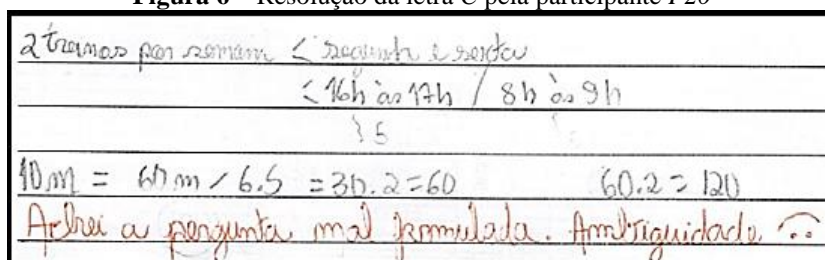 Figura 6 – Resolução da letra C pela participante P20
2 treinos por semana < segunda e sexta
< 16h às 17h / 8h às 9h
} 5
10 m = 60 m / 6.5 = 30.2 = 60 60.2 = 120
Achei a pergunta mal formulada. Ambiguidade